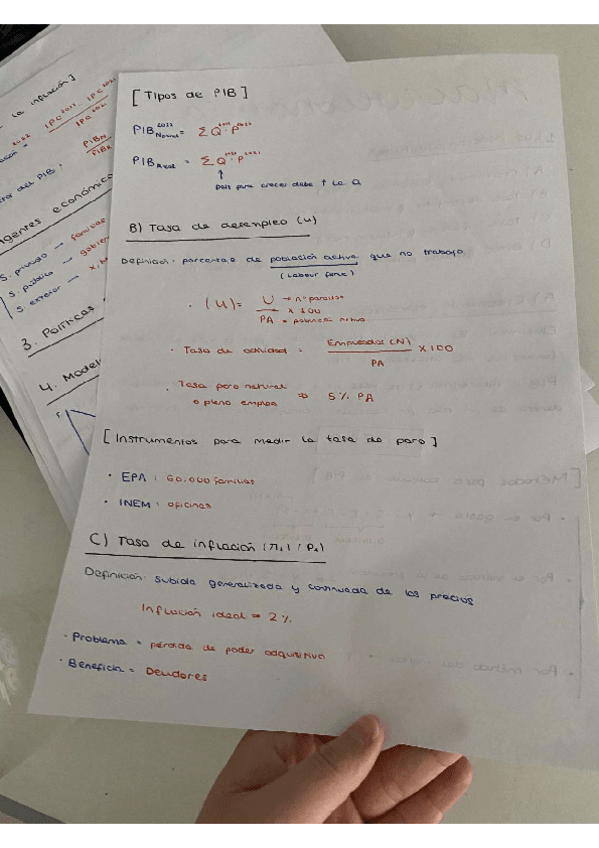 [Tipos de PIB]
PIB Nominal 2022 = Σ Q 2022 · P 2022
PIB Real = Σ Q 2022 · P 2021
↑
país para crecer debe ↑ la Q
B) Tasa de desempleo (u)
Definición: porcentaje de población activa que no trabaja
(Labour force)
· (u) = U → nº parados / PA = población activa x 100
· Tasa de actividad = Empleados (N) / PA x 100
· Tasa paro natural
o pleno empleo ⇒ 5% PA
[Instrumentos para medir la tasa de paro]
· EPA : 60.000 familias
· INEM : oficinas
C) Tasa de inflación (π, /
Definición: subida generalizada y continuada de los precios
Inflación ideal = 2%
· Problema = pérdida de poder adquisitivo
· Beneficia = Deudores
la inflación]
IPC 2022 - IPC 2021
IPC 2021
del PIB :
PIBN
PIBR
Agentes económicos
S. privado → familias
S. público →
S. exterior →
3. Políticas
4. Model